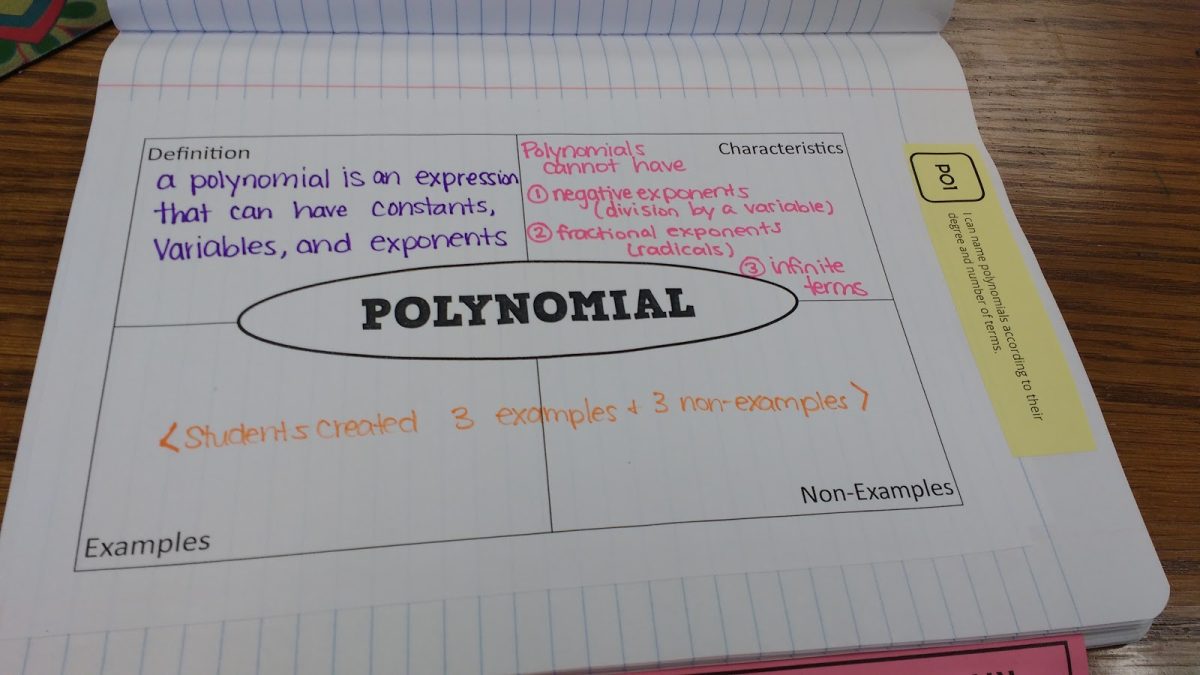 Definition
a polynomial is an expression
that can have constants,
variables, and exponents
Characteristics
Polynomials
cannot have
① negative exponents
(division by a variable)
② fractional exponents
(radicals)
③ infinite
terms
POLYNOMIAL
<Students created 3 examples + 3 non-examples>
Examples
Non-Examples
PO1
I can name polynomials according to their
degree and number of terms.